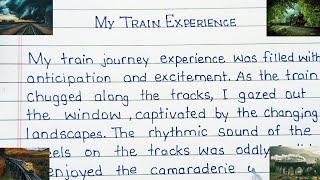 My Train Experience
My train journey experience was filled with
anticipation and excitement. As the train
chugged along the tracks, I gazed out
the window, captivated by the changing
landscapes. The rhythmic sound of the
on the tracks was oddly
enjoyed the camaraderie